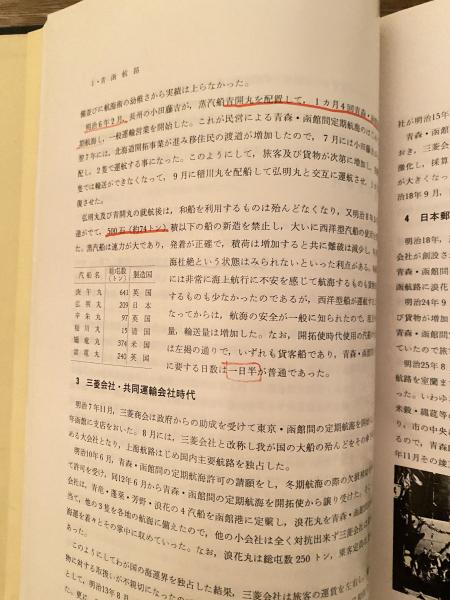 1・青函航路
備並びに航海術の幼稚さから実績は上らなかった。
明治6年2月、長州の小田藤吉が、蒸汽船青開丸を配置して、1カ月4回青森・
期航海し、一般運輸営業を開始した。これが民営による青森・函館間定期航海の
7年には、北海道開拓事業が進み移住民の渡道が増加したので、7月には小田藤
配し、2隻で運航する事になった。このようにして、旅客及び貨物が次第に増加し、
隻では輸送ができなくなって、9月に稲川丸を配船して弘明丸と交互に運航させ、
復させた。
弘明丸及び青開丸の就航後は、和船を利用するものは殆んどなくなり、又明治
達がでて、500石(約74トン)積以下の船の新造を禁止し、大いに西洋型汽船の使
た。蒸汽船は速力が大であり、発着が正確で、積荷は増加すると共に難破は減少し、
海杜絶という状態はみられないといった利点がある。
には非常に海上航行に不安を感じて航海するものも
するものも少なかったのであるが、西洋型船が運航
なってからは、航海の安全が一般に知られたので
量、輸送量は増加した。なお、開拓使時代使用の汽船
は左掲の通りで、いずれも貨客船であり、青森・函館
に要する日数は一日半が普通であった。
汽船名 総屯数(トン) 製造国
庚午丸 641 英国
弘明丸 209 日本
辛未丸 97 英国
稲川丸 15 清国
矯竜丸 374 米国
雷竜丸 240 英国
3 三菱会社・共同運輸会社時代
明治7年11月、三菱商会は政府からの助成を受けて東京・函館間の定期航海を開
年函館に支店をおいた。8月には、三菱会社と改称し我が国の大船の殆んどをその
ある大会社となり、上海航路はじめ国内主要航路を独占した。
明治10年6月、青森・函館間の定期航海許可の請願をし、冬期航海の際の欠航
て許可を受け、同12年6月から青森・函館間の定期航海を開拓使から譲り受けた。
会社は、青竜・蓬莱・芳野・浪花の4汽船を函館港に定繋し、浪花丸を青森・函
当て、他の3隻を各地の航海に備えたので、他の小会社は全く対抗出来ず三菱会社
海運を着々とその掌中に収めていった。なお、浪花丸は総屯数250トン、乗客定
あった。
このようにしてわが国の海運界を独占した結果、三菱会社は旅客の運賃を左右し、
物に対する取扱いが不親切になった
として、明治13年8月
社が明治15年
青森・函
激化し、採算
が大きくなっ
治18年9月、
4 日本郵
明治18年、
会社が創設さ
青森・函館間
函館に浪花
明治24年9
貨物が
ていたので旅
明治25年8
路を室蘭まで
た。いわゆ
米穀・縄莚等の
り、市の中央は
るので、青森
年11月その竣